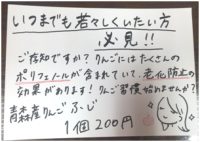 いつまでも若々しくいたい方
必見!!
ご存知ですか?りんごにはたくさんの
ポリフェノールが含まれていて、老化防止の
効果があります!りんご習慣始めませんか?
青森産りんご ふじ
1個200円